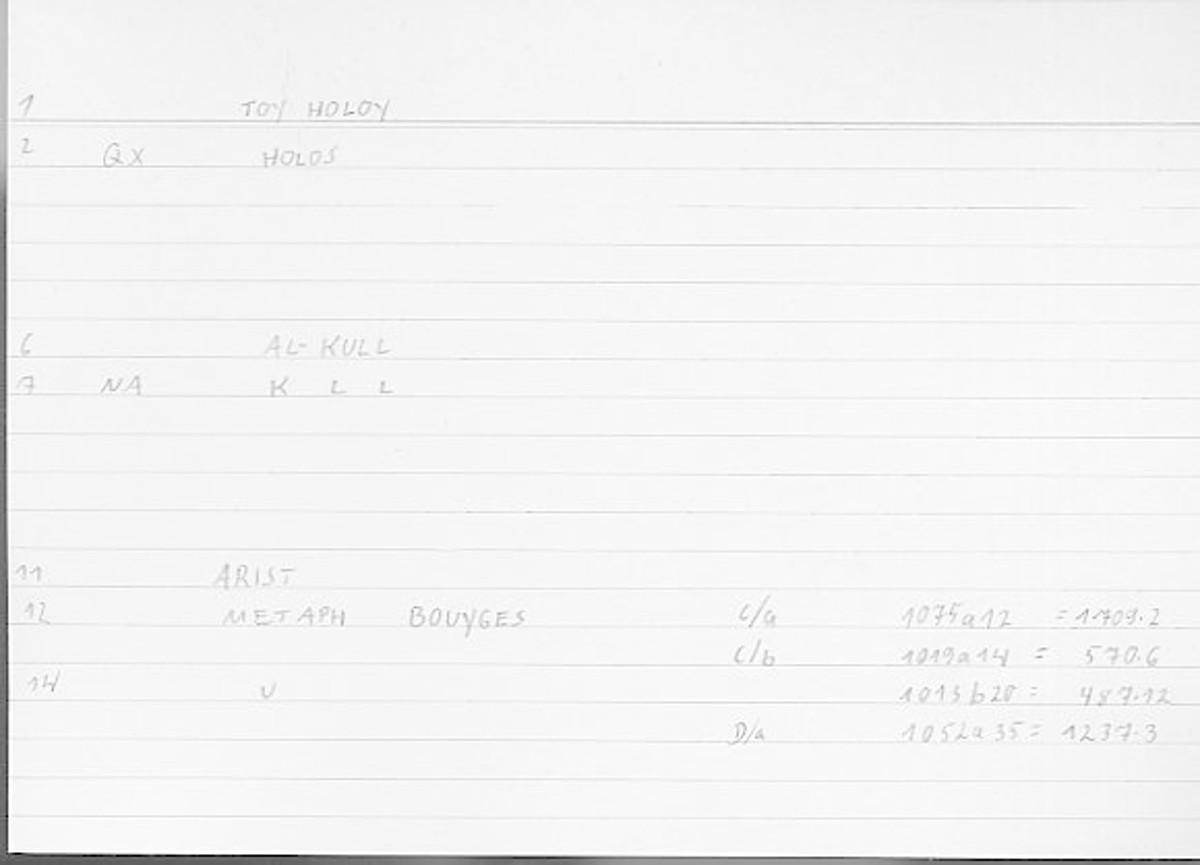 1 TOY HOLOY
2 QX HOLOS
6 AL-KULL
7 NA K L L
11 ARIST
12 METAPH BOUYGES C/a 1075a12 = 1709.2
C/b 1019a14 = 570.6
14 U 1013b20 = 487.12
D/a 1052a35 = 1237.3